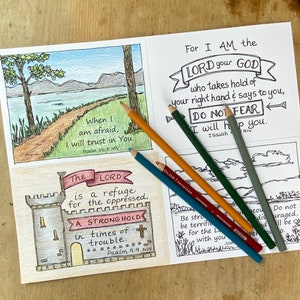 When I
am afraid,
I will trust in You.
Psalm 56:3 NIV
For I AM the
LORD your GOD
who takes hold of
your right hand & says to you,
DO NOT FEAR.
I will help you.
Isaiah NIV
The LORD
is a refuge
for the oppressed,
A STRONGHOLD
in times of
trouble.
Psalm 9:9 NIV
Be strong Do not
be terrified
for the
with you